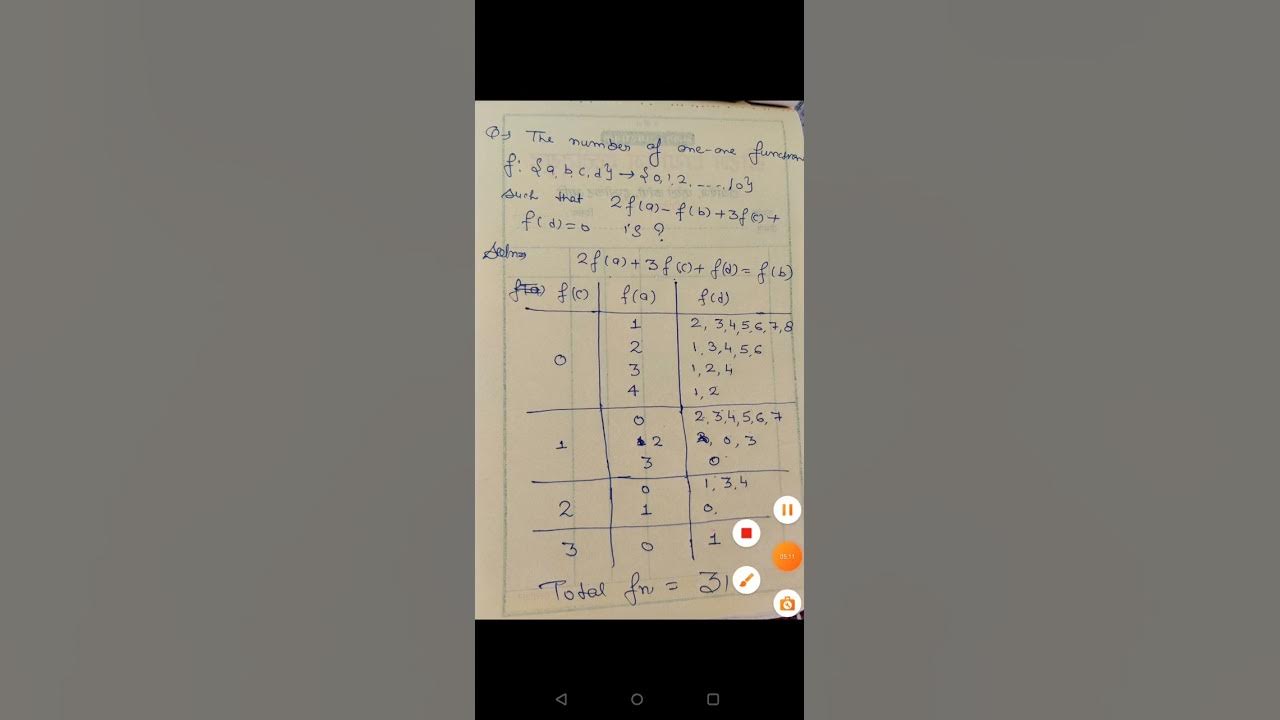 Q→ The number of one-one function
f: {a, b, c, d} → {0, 1, 2, ...., 10}
such that 2f(a) - f(b) + 3f(c) +
f(d) = 0 is ?
Soln→ 2f(a) + 3f(c) + f(d) = f(b)
f(c) f(a) f(d)
1 2, 3,4,5,6,7,8
0 2 1,3,4,5,6
3 1,2,4
4 1,2
0 2,3,4,5,6,7
1 2 0, 3
3 0
0 1, 3,4
2 1 0.
3 0 1
Total fn = 31